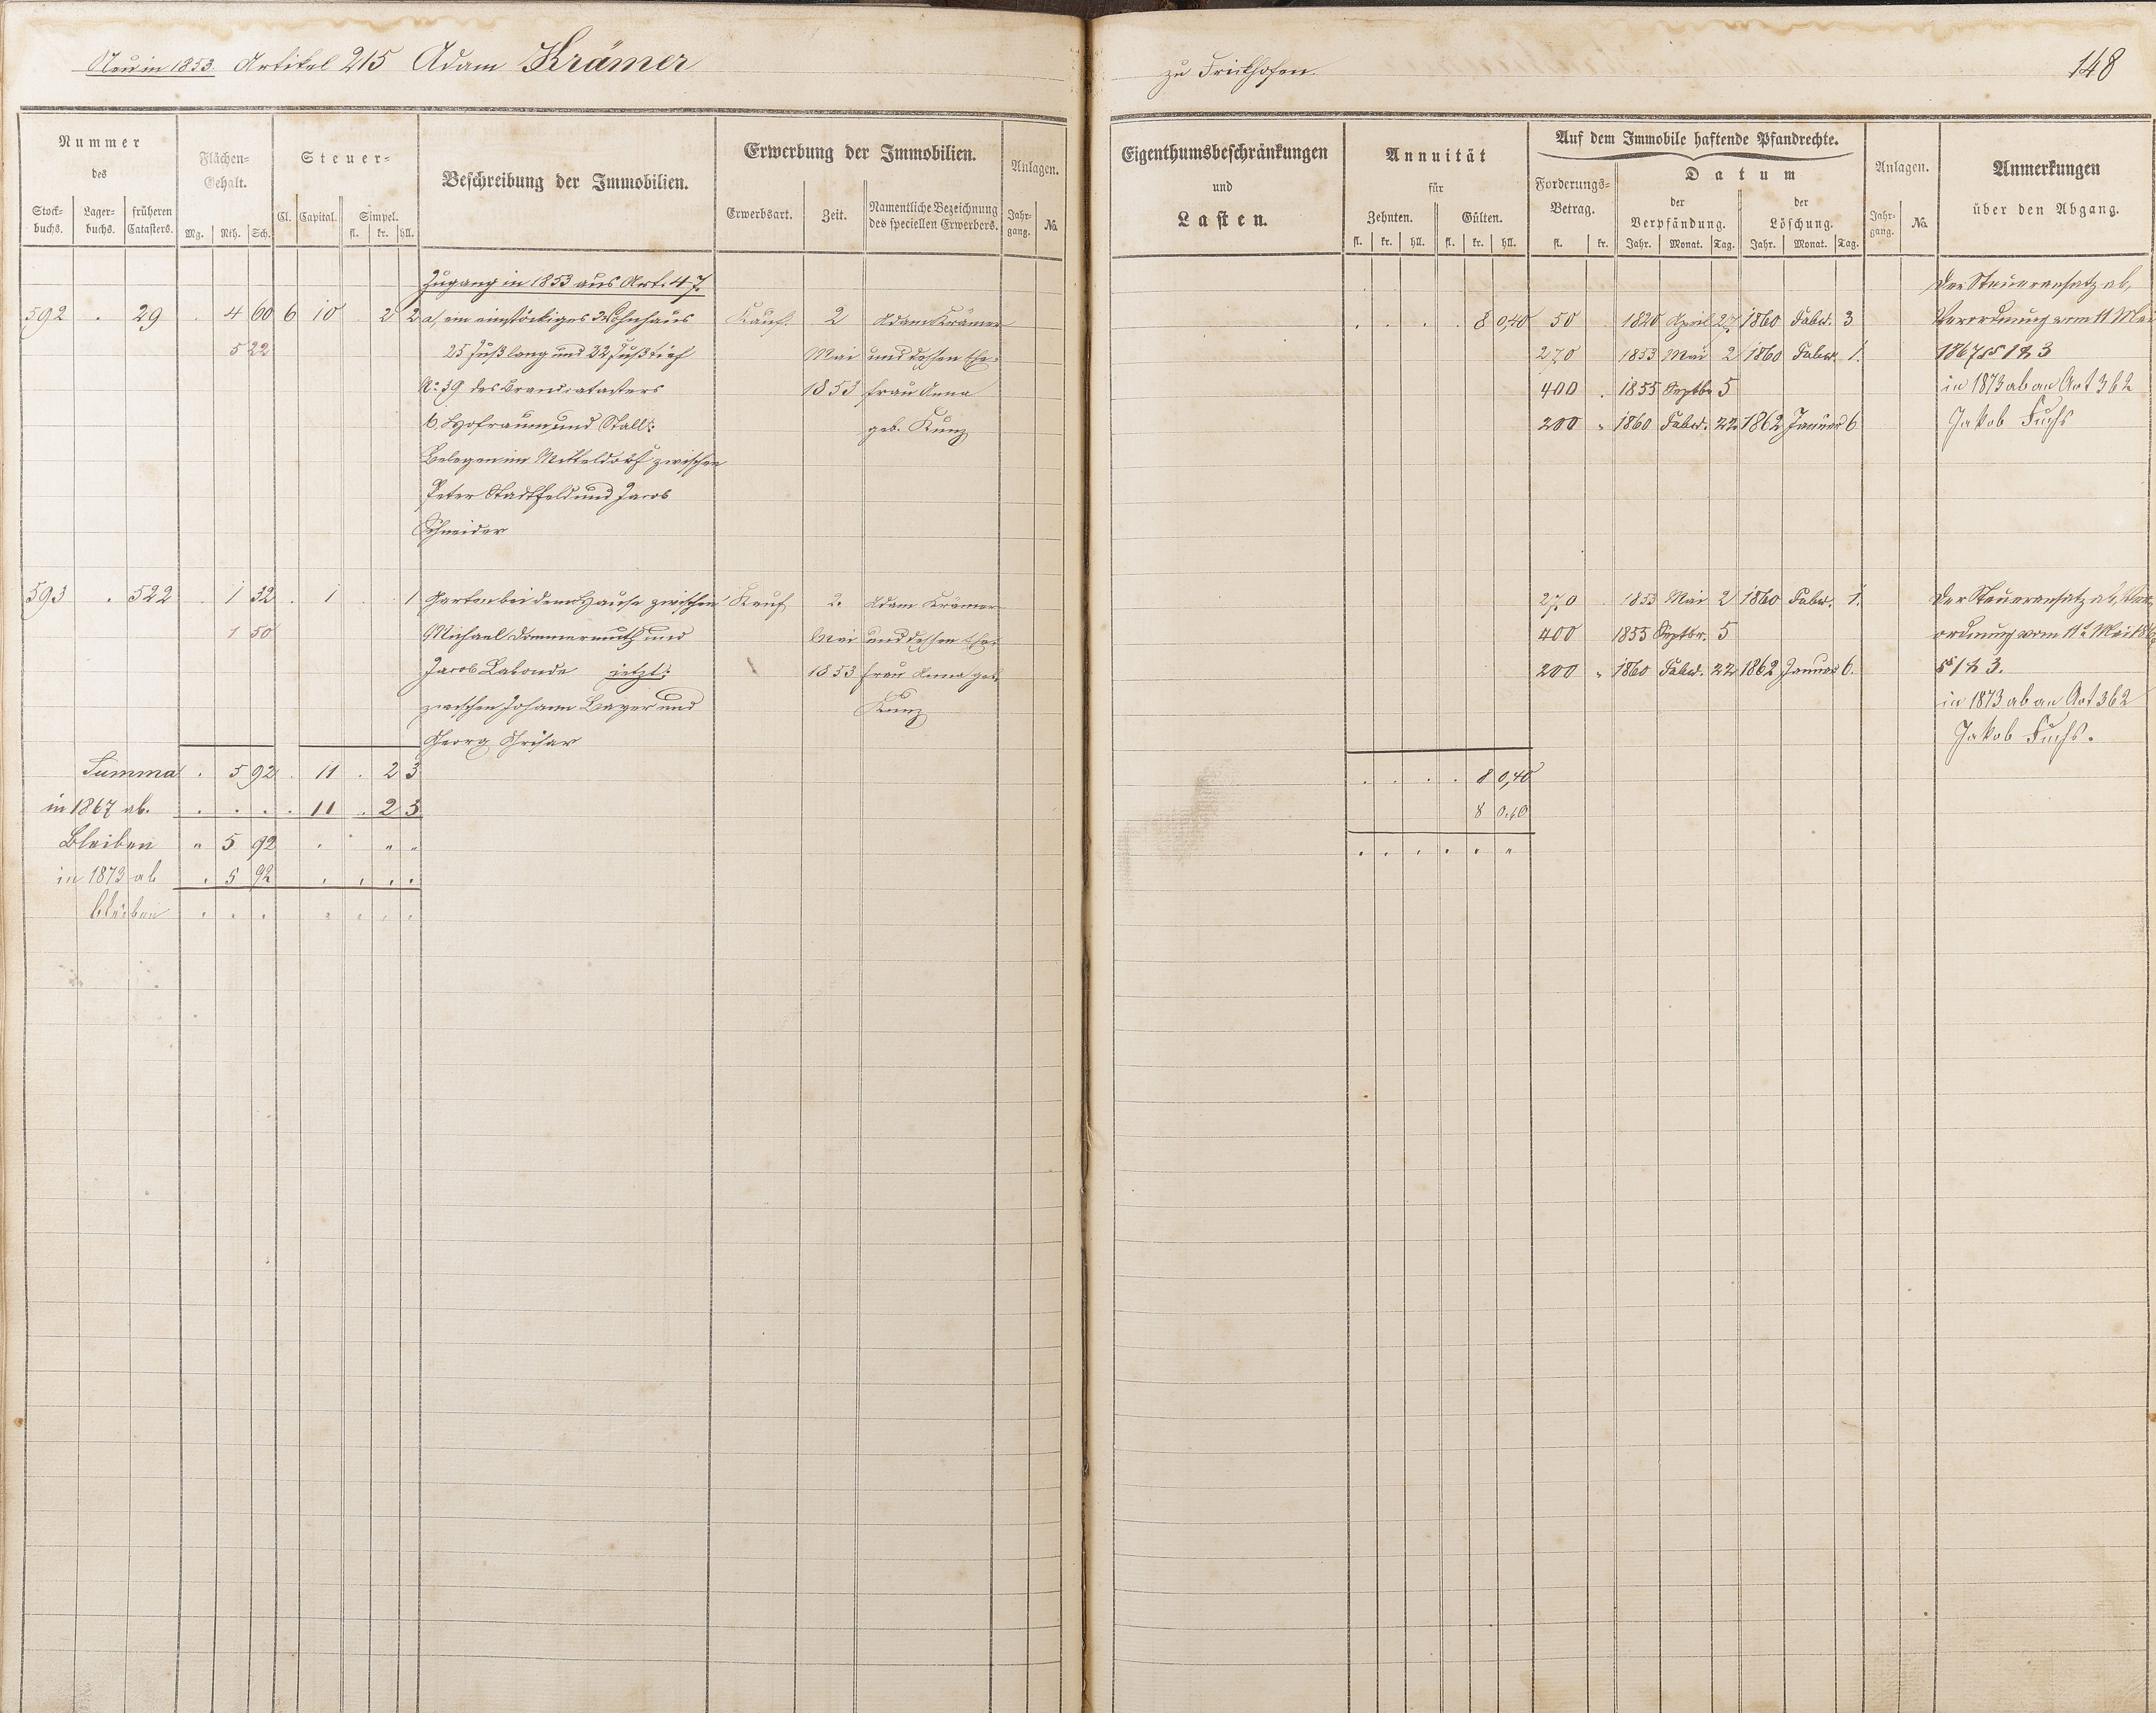 Neu in 1853. Artikel 215 Adam Krämer
Nummer des
Stock-buchs. Lager-buchs. früheren Catasters.
Flächen-Gehalt.
Mg. Rth. Sch.
Steuer-
Cl. Capital. Simpel.
fl. kr. hll.
Beschreibung der Immobilien.
Erwerbung der Immobilien.
Erwerbsart. Zeit. Namentliche Bezeichnung des speciellen Erwerbers.
Anlagen.
Jahr-gang. No.
Zugang in 1853 aus Art. 47.
592 . 29 . 4 60 6 10 . 2 2 a, ein einstöckiges Wohnhaus Kauf. 2 Adam Krämer
5 22 25 Fuß lang und 32 Fuß tief Mai und dessen Ehe-
No. 39 des Brandcatasters 1853 frau Anna
b, Hofraum und Stall: geb. Kunz
Belegen im Mitteldorf zwischen
Peter Stadtfeld und Jacob
Schneider
593 . 522 . 1 32 . 1 . . 1 Garten bei dem Hause zwischen Kauf 2. Adam Krämer
1 50 Michael Dommermuth und Mai und dessen Ehe-
Jacob Labonde jetzt: 1853 frau Anna geb.
zwischen Johann Bayer und Kunz
Georg
Summa . 5 92 . 11 . 2 3
in 1867 ab. . . . . 11 . 2 3
Bleiben " 5 92 . " "
in 1873 ab . 5 92 . . . .
bleiben . . . . . . .
zu Frickhofen.
148
Eigenthumsbeschränkungen
und
Lasten.
Annuität
für
Zehnten. Gülten.
fl. kr. hll. fl. kr. hll.
Auf dem Immobile haftende Pfandrechte.
Forderungs-Betrag.
fl. kr.
Datum
der Verpfändung.
Jahr. Monat. Tag.
der Löschung.
Jahr. Monat. Tag.
Anlagen.
Jahr-gang. No.
Anmerkungen
über den Abgang.
Der Steueransatz ab,
. . . . 8 0,40 50 1820 April 27 1860 Febr. 3 Verordnung vom 11 Mai
270 1853 Mai 2 1860 Febr. 1. 1867 §§ 1 & 3
400 . 1855 Septbr 5 in 1873 ab an Art 362
200 " 1860 Febr. 22 1862 Januar 6 Jakob Fuchs
270 1853 Mai 2 1860 Febr. 1. Der Steueransatz ab, Ver-
400 1855 Septbr. 5 ordnung vom 11t Mai 1867
200 " 1860 Febr. 22 1862 Januar 6. §§ 1 & 3.
in 1873 ab an Art 362
Jakob Fuchs.
. . . . 8 0,40
8 0.40
. . . . . "